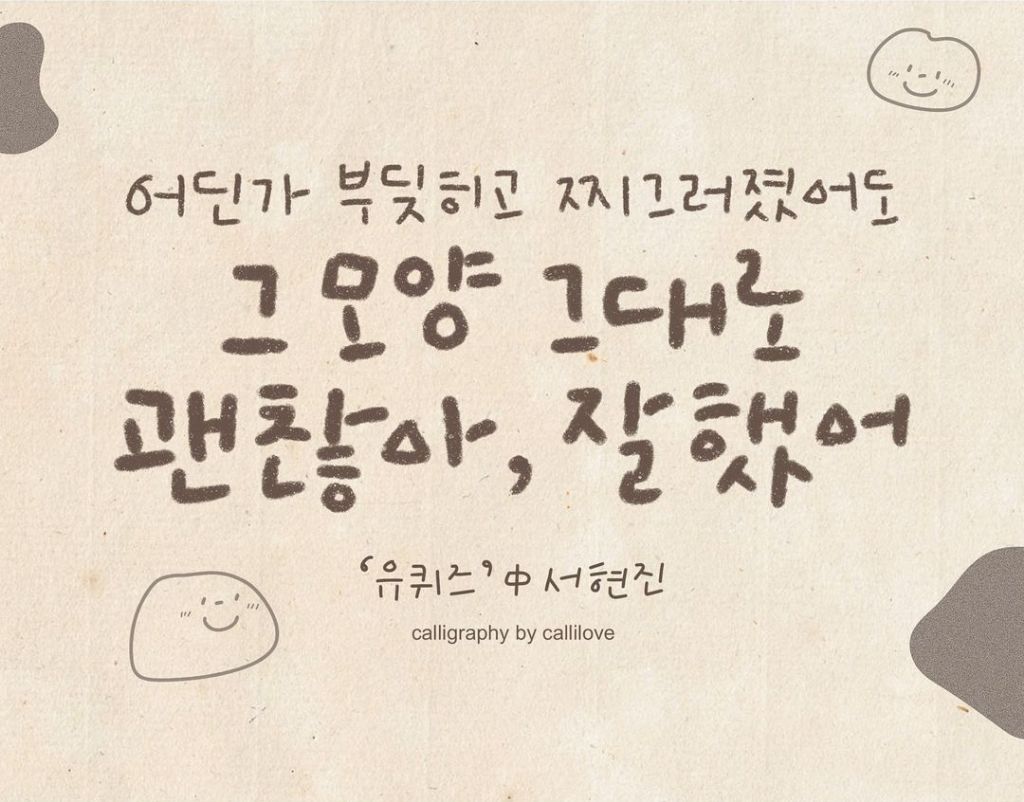 어딘가 부딪히고 찌그러졌어도
그 모양 그대로
괜찮아, 잘했어
‘유퀴즈’ 中 서현진
calligraphy by callilove